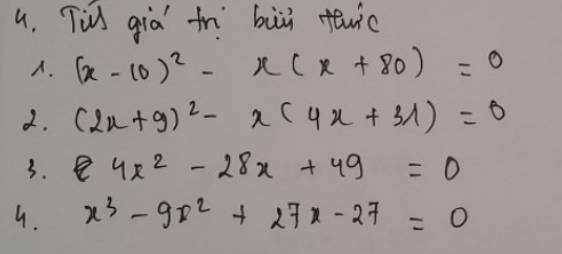 4. Tính giá trị biểu thức
1. (x - 10)² - x(x + 80) = 0
2. (2x + 9)² - x(4x + 31) = 0
3. 4x² - 28x + 49 = 0
4. x³ - 9x² + 27x - 27 = 0